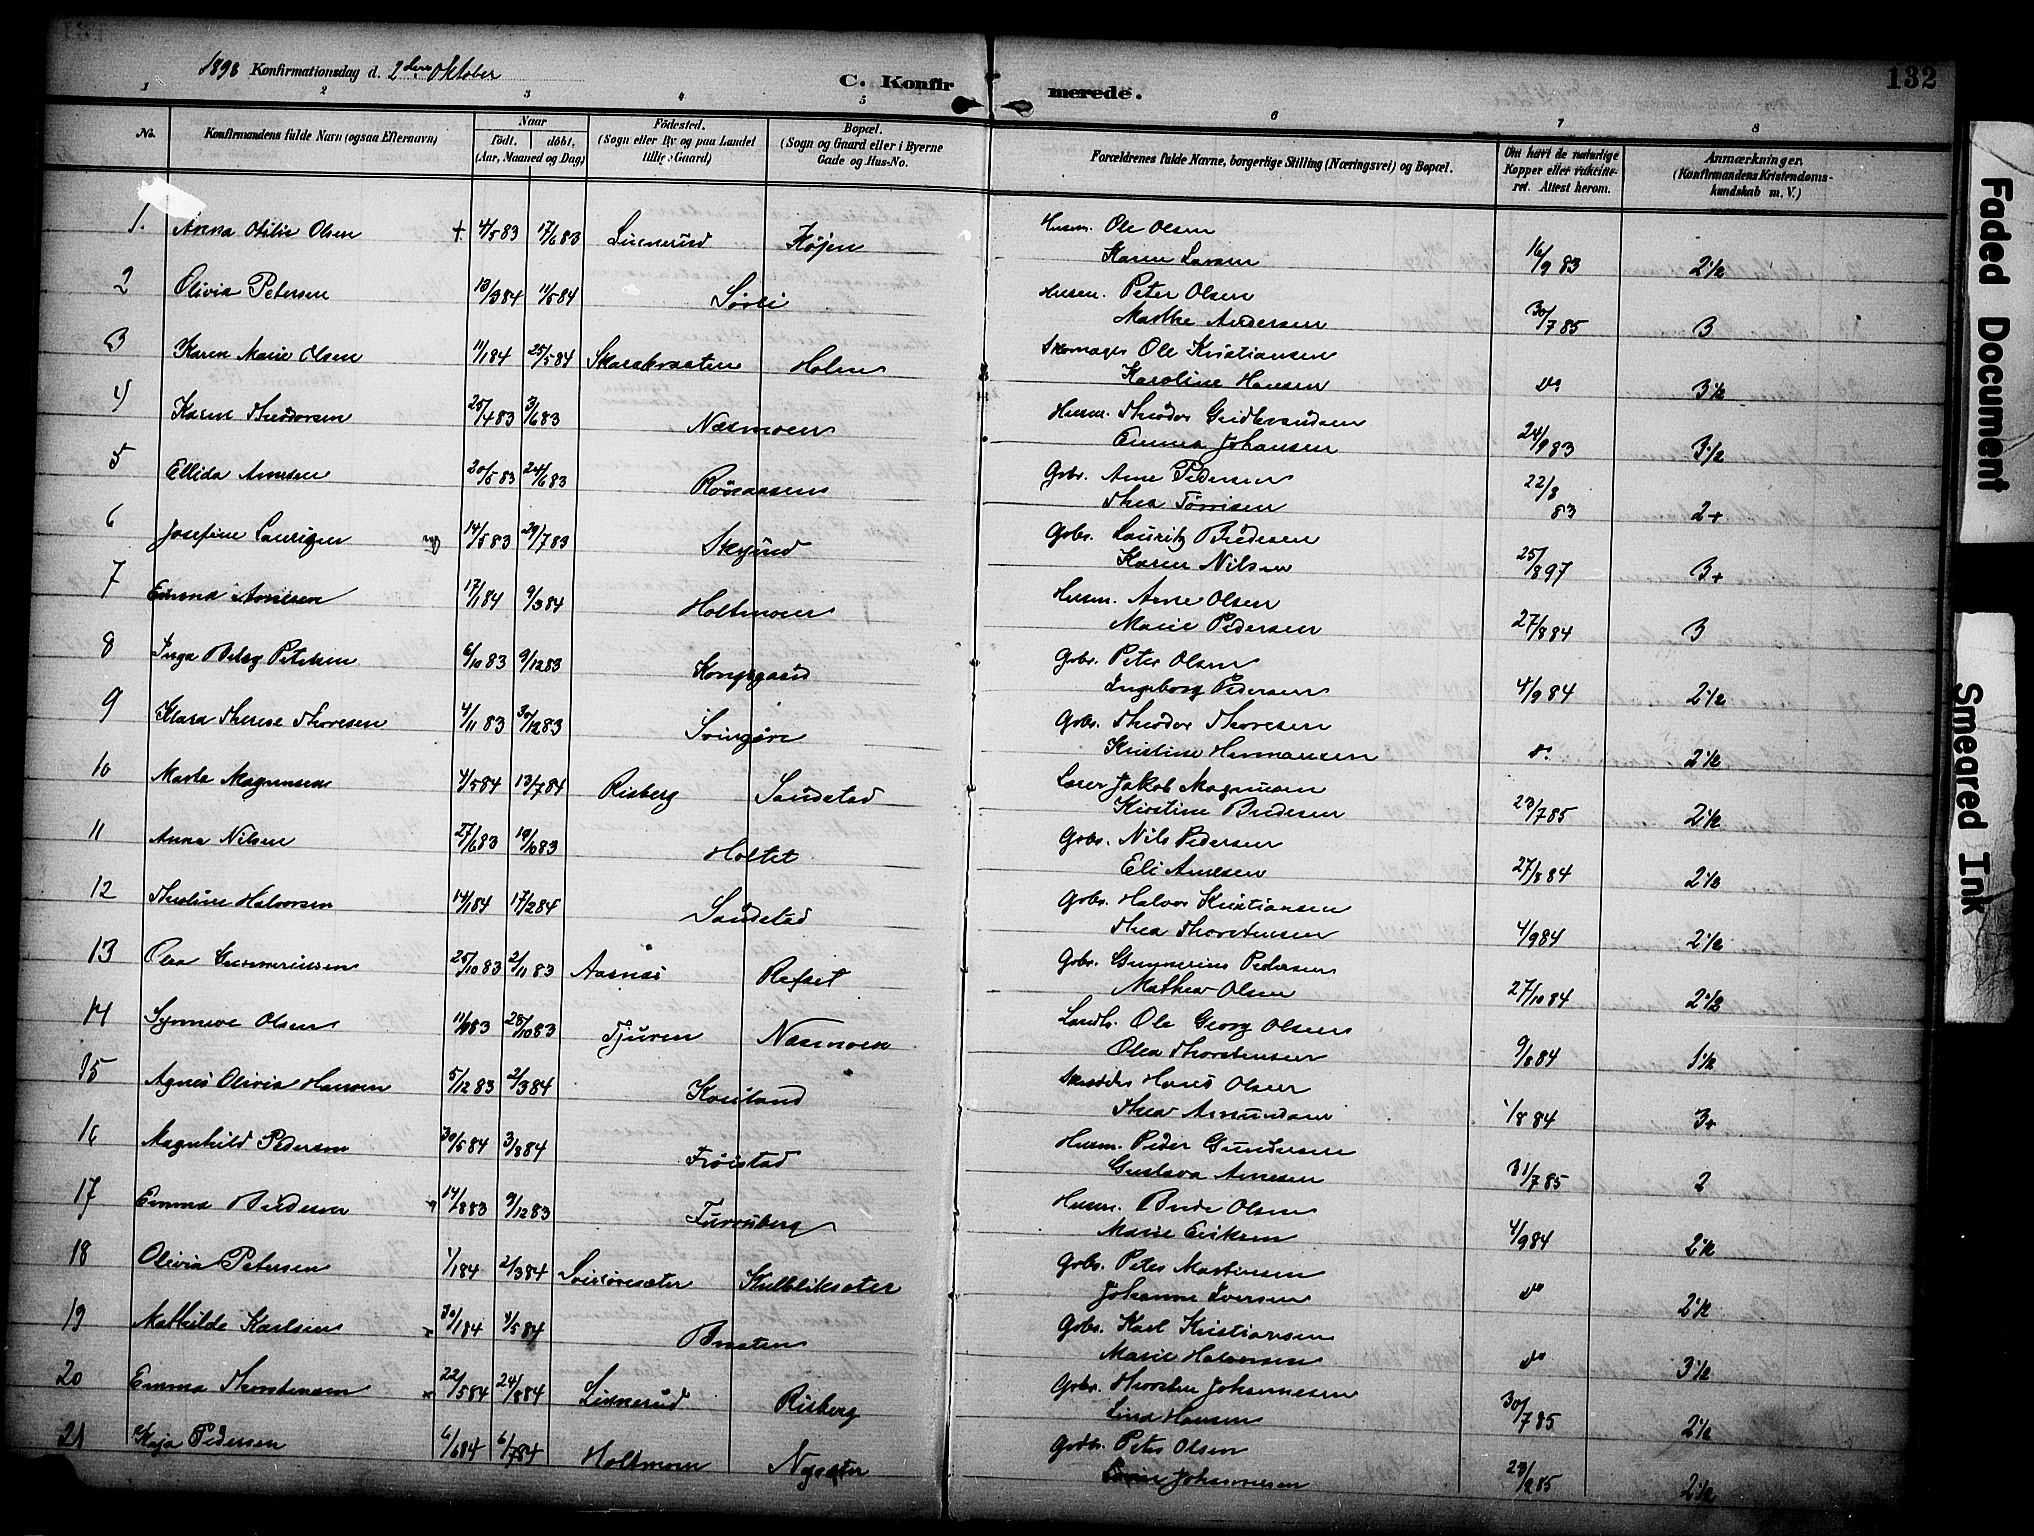 1898 Konfirmationsdag d. 2den Oktober
C. Konfirmerede.
132
1 2 3 4 5 6 7 8
No. Konfirmandens fulde Navn (ogsaa Efternavn) Naar födt. döbt. (Aar, Maaned og Dag) Födested. (Sogn eller By og paa Landet tillige Gaard) Bopæl. (Sogn og Gaard eller i Byerne Gade og Hus-No. Forældrenes fulde Navne, borgerlige Stilling (Næringsvei) og Bopæl. Om havt de naturlige Kopper eller vakcineret. Attest herom. Anmærkninger. (Konfirmandens Kristendomskundskab m. V.)
1. Anna Otilie Olsen + 4/5 83 17/6 83 Linnerud Køjen Husm. Ole Olsen
Karen Larsen 16/9 83 2 1/2
2 Olivia Petersen 13/3 84 11/5 84 Sørli Husm. Peter Olsen
Marthe Andersen 30/7 85 3
3 Karen Marie Olsen 11/1 84 25/5 84 Skarakraaten Holen Skomager Ole Kristiansen
Karoline Hansen do 3 1/2
4 Karen Theodorsen 25/4 83 3/6 83 Næsmoen Husm. Theodor Guldbrandsen
Emma Johansen 24/9 83 3 1/2
5 Ellida Arnesen 20/5 83 24/6 83 Rösaasen Gbr. Arne Pedersen
Thea Tørrisen 22/8 83 2+
6 Josefine Lauritzen 14/5 83 29/7 83 Skyrud Gbr. Lauritz Bredesen
Karen Nilsen 25/8 97 3+
7 Emma Arnesen 17/1 84 9/3 84 Holtmoen Husm. Arne Olsen
Marie Pedersen 27/8 84 3
8 Inga Petersen 6/10 83 9/12 83 Kongsgaard Gbr. Peter Olsen
Ingeborg Pedersen 4/9 84 2 1/2
9 Klara Therese Thoresen 4/11 83 30/12 83 Svingøre Gbr. Theodor Thoresen
Kristine Hermansen do 2 1/2
10 Marte Magnussen 4/5 84 13/7 84 Risberg Sandstad Jakob Magnusen
Kirstine Bredesen 23/7 85 2 1/2
11 Anna Nilsen 27/6 83 83 Holtet Gbr. Nils Pedersen
Eli Arnesen 27/8 84 2 1/2
12 Theoline Halvorsen 14/1 84 17/2 84 Sandstad Gbr. Halvor Kristiansen
Thea Thorstensen 4/9 84 2 1/2
13 Olea Gunneriusen 25/10 83 2/11 83 Aasnæs Refset Gbr. Gunnerius Pedersen
Mathea Olsen 27/10 84 2 1/2
14 Synnøve Olsen 11/9 83 28/10 83 Tjuren Næsmoen Landh. Ole Georg Olsen
Olea Thorstensen 9/8 84 1 1/2
15 Agnes Olivia Hansen 5/12 83 2/3 84 Kouland Skrædder Hans Olsen
Thea Amundsen 1/8 84 3+
16 Magnhild Pedersen 30/5 84 3/8 84 Frøistad Husm. Peder Gundersen
Gustava Arnesen 31/7 85 2
17 Emma Bredesen 14/8 83 9/12 83 Furruberg Husm. Brede Olsen
Marie Eriksen 4/9 84 2 1/2
18 Olivia Petersen 1/1 84 2/3 84 Kulbliksæter Gbr. Peter Martinsen
Johanne Iversen do 2 1/2
19 Mathilde Karlsen x 30/1 84 4/5 84 Braaten Gbr. Karl Kristiansen
Marie Halvorsen do 3 1/2
20 Emma Thorstensen x 22/5 84 24/8 84 Linnerud Risberg Gbr. Thorsten Johannesen
Lina Hansen 30/7 85 2 1/2
21 Kaja Pedersen 6/6 84 6/7 84 Holtmoen Nysæter Gbr. Peter Olsen
Johannesen 23/9 85 2 1/2
Faded Document
Smeared Ink